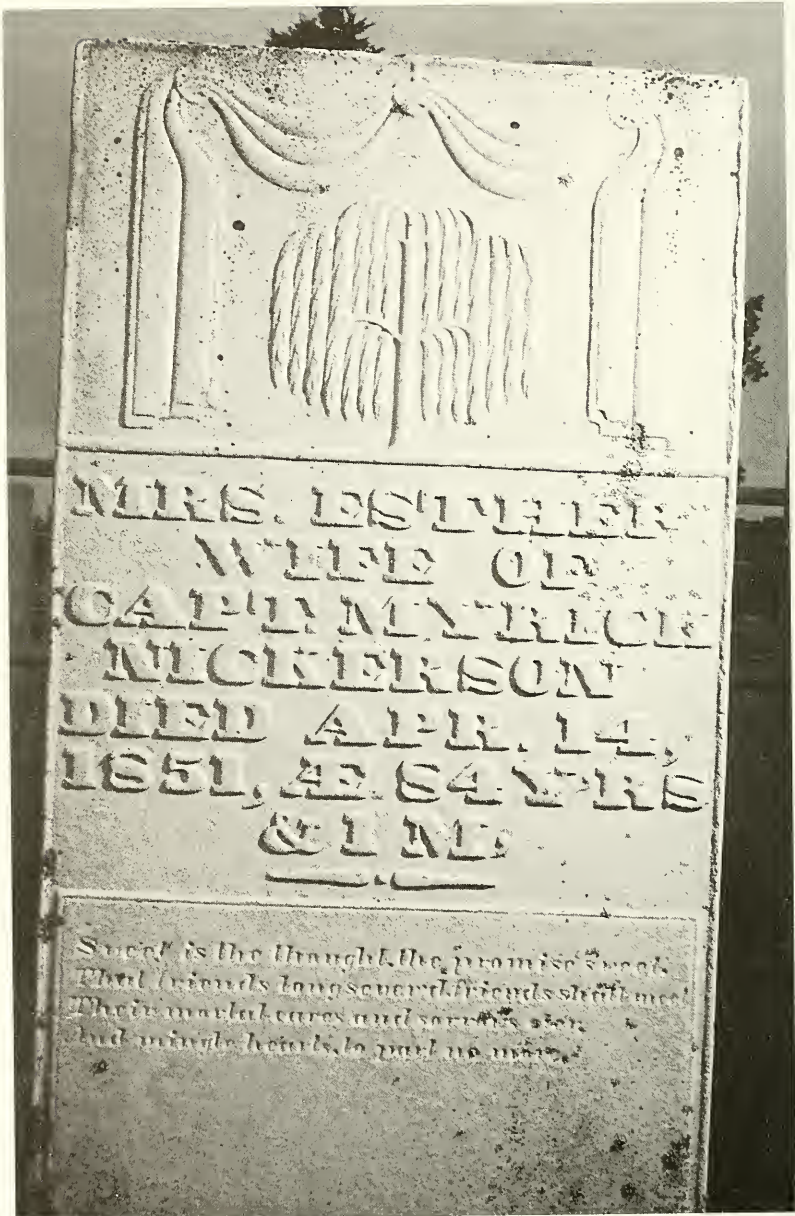 MRS. ESTHER
WIFE OF
CAP'T. MYRICK
NICKERSON
DIED APR. 14,
1851, Æ. 84 Y'RS
& 1 M.
Sweet is the thought, the promise sweet,
That friends, long sever'd friends shall meet
Their mortal cares and sorrows o'er,
And mingle hearts, to part no more.